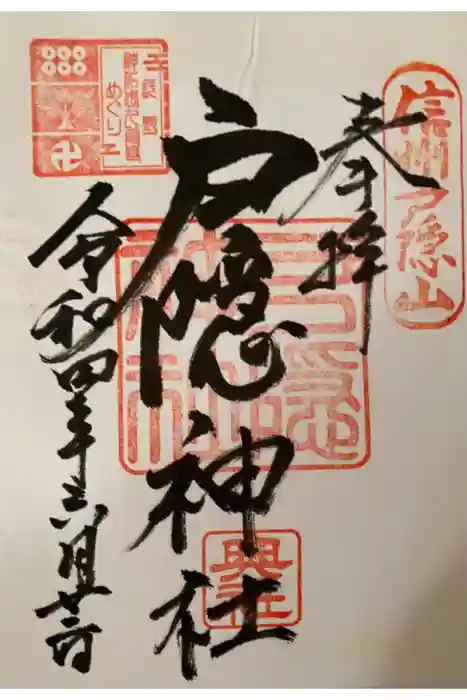 信州戸隠山
奉拝
戸隠神社
戸隠神社
奥社
令和四年六月廿日
めぐり
卍